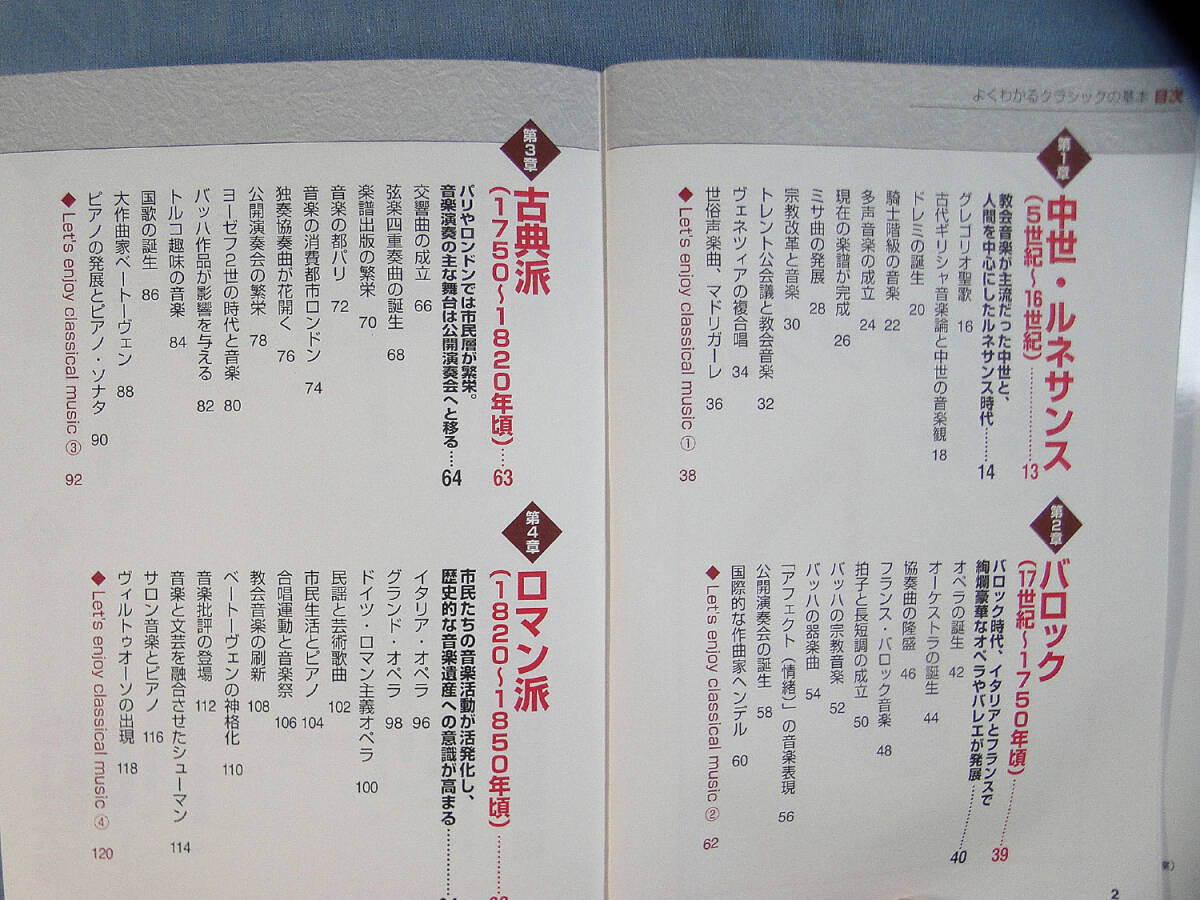 よくわかるクラシックの基本 目次
第1章
中世・ルネサンス
(5世紀〜16世紀)…………13
教会音楽が主流だった中世と、
人間を中心にしたルネサンス時代………14
グレゴリオ聖歌 16
古代ギリシャ音楽論と中世の音楽観 18
ドレミの誕生 20
騎士階級の音楽 22
多声音楽の成立 24
現在の楽譜が完成 26
ミサ曲の発展 28
宗教改革と音楽 30
トレント公会議と教会音楽 32
ヴェネツィアの複合唱 34
世俗声楽曲、マドリガーレ 36
◆ Let's enjoy classical music ① 38
第2章
バロック
(17世紀〜1750年頃)…………39
バロック時代、イタリアとフランスで
絢爛豪華なオペラやバレエが発展…………40
オペラの誕生 42
オーケストラの誕生 44
協奏曲の隆盛 46
フランス・バロック音楽 48
拍子と長短調の成立 50
バッハの宗教音楽 52
バッハの器楽曲 54
「アフェクト(情緒)」の音楽表現 56
公開演奏会の誕生 58
国際的な作曲家ヘンデル 60
◆ Let's enjoy classical music ② 62
2
第3章
古典派
(1750〜1820年頃)……63
パリやロンドンでは市民層が繁栄。
音楽演奏の主な舞台は公開演奏会へと移る……64
交響曲の成立 66
弦楽四重奏曲の誕生 68
楽譜出版の繁栄 70
音楽の都パリ 72
音楽の消費都市ロンドン 74
独奏協奏曲が花開く 76
公開演奏会の繁栄 78
ヨーゼフ2世の時代と音楽 80
バッハ作品が影響を与える 82
トルコ趣味の音楽 84
国歌の誕生 86
大作曲家ベートーヴェン 88
ピアノの発展とピアノ・ソナタ 90
◆ Let's enjoy classical music ③ 92
第4章
ロマン派
(1820〜1850年頃)…………
市民たちの音楽活動が活発化し、
歴史的な音楽遺産への意識が高まる…………
イタリア・オペラ 96
グランド・オペラ 98
ドイツ・ロマン主義オペラ 100
民謡と芸術歌曲 102
市民生活とピアノ 104
合唱運動と音楽祭 106
教会音楽の刷新 108
ベートーヴェンの神格化 110
音楽批評の登場 112
音楽と文芸を融合させたシューマン 114
サロン音楽とピアノ 116
ヴィルトゥオーソの出現 118
◆ Let's enjoy classical music ④ 120